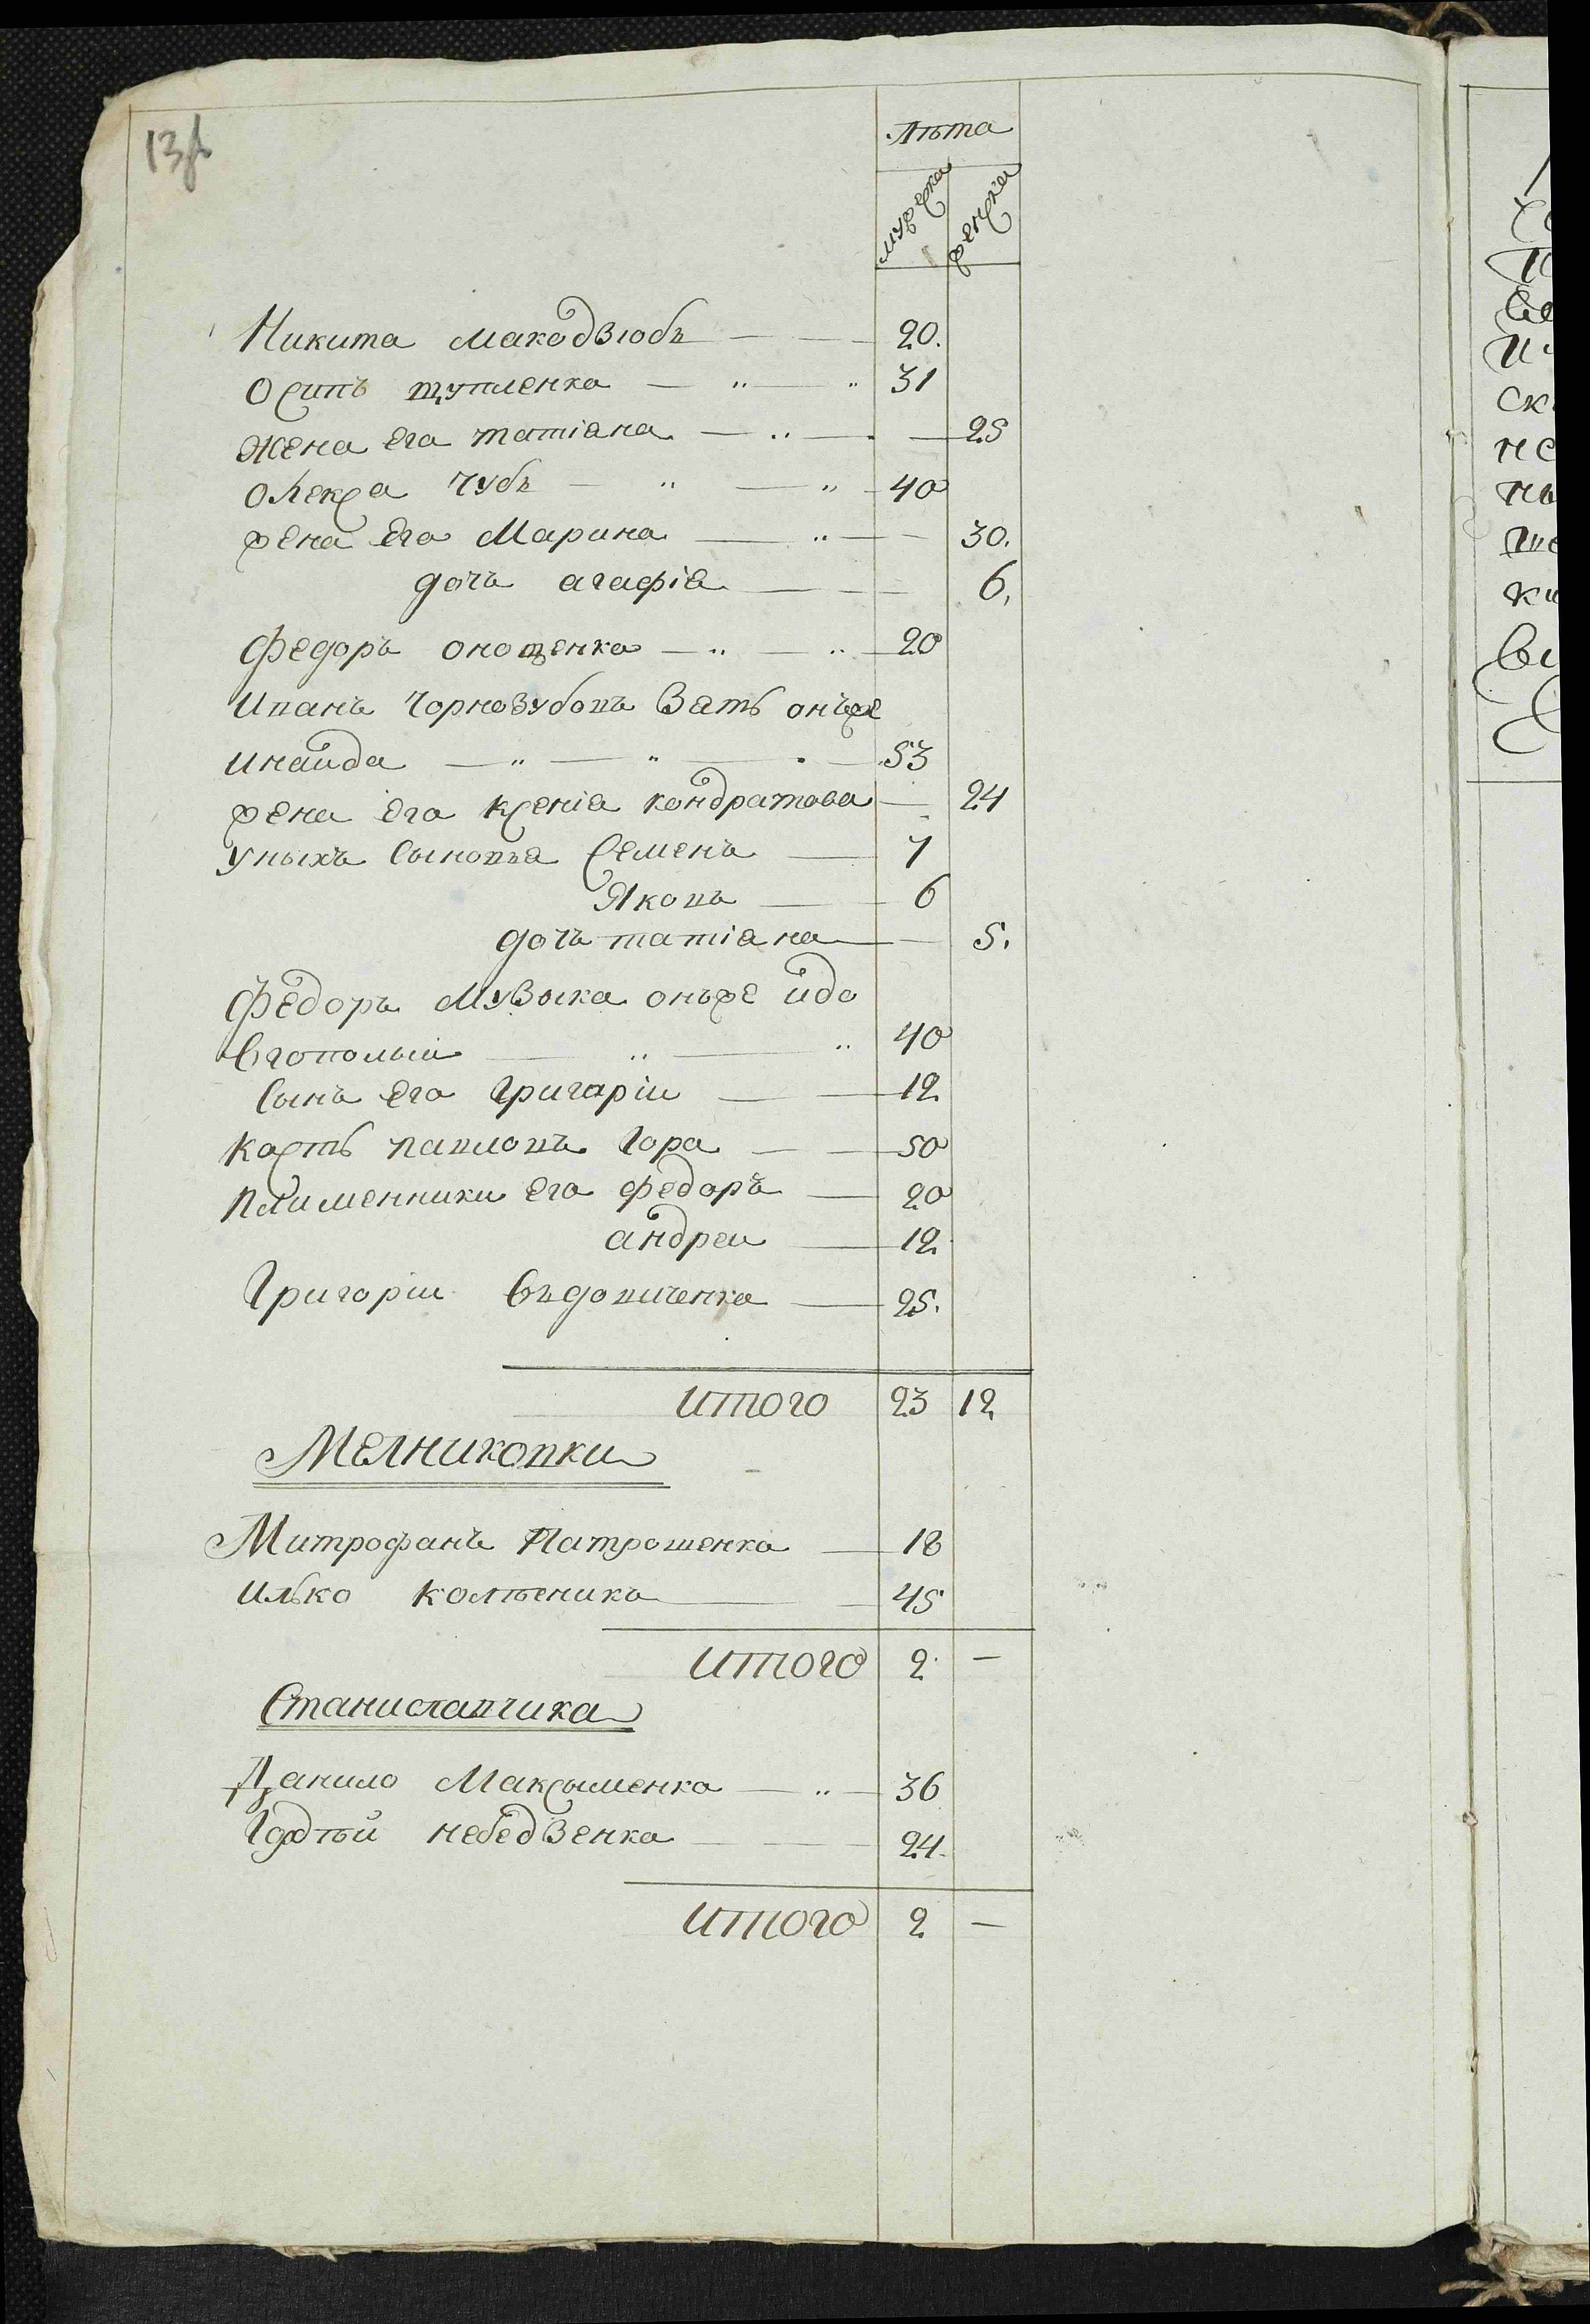 Лѣта
мужска женска
Никита Макодзюбъ 20.
Осипъ щупленка 31
жена его татіана 25
Олекса Чубъ 40
жена его Марина 30.
дочъ агафія 6.
Федоръ онощенка 20
Иванъ Чорнозубовъ Зять онъже
инаида 53
жена его ксенія кондратова 24
уныхъ сыновья Семенъ 7
Яковъ 6
дочъ татіана 5.
Федоръ Музыка онъже идо
40
сынъ его Григарій 12
павловъ Гора 50
племенники его федоръ 20
андреи 12
Григоріи вдовиченка 25.
Итого 23 12
Мелниковки
Митрофанъ Патрошенка 18
илько колѣсникъ 45
Итого 2 —
Станиславчика
Данило Максыменка 36
небедзенка 24.
Итого 2 —